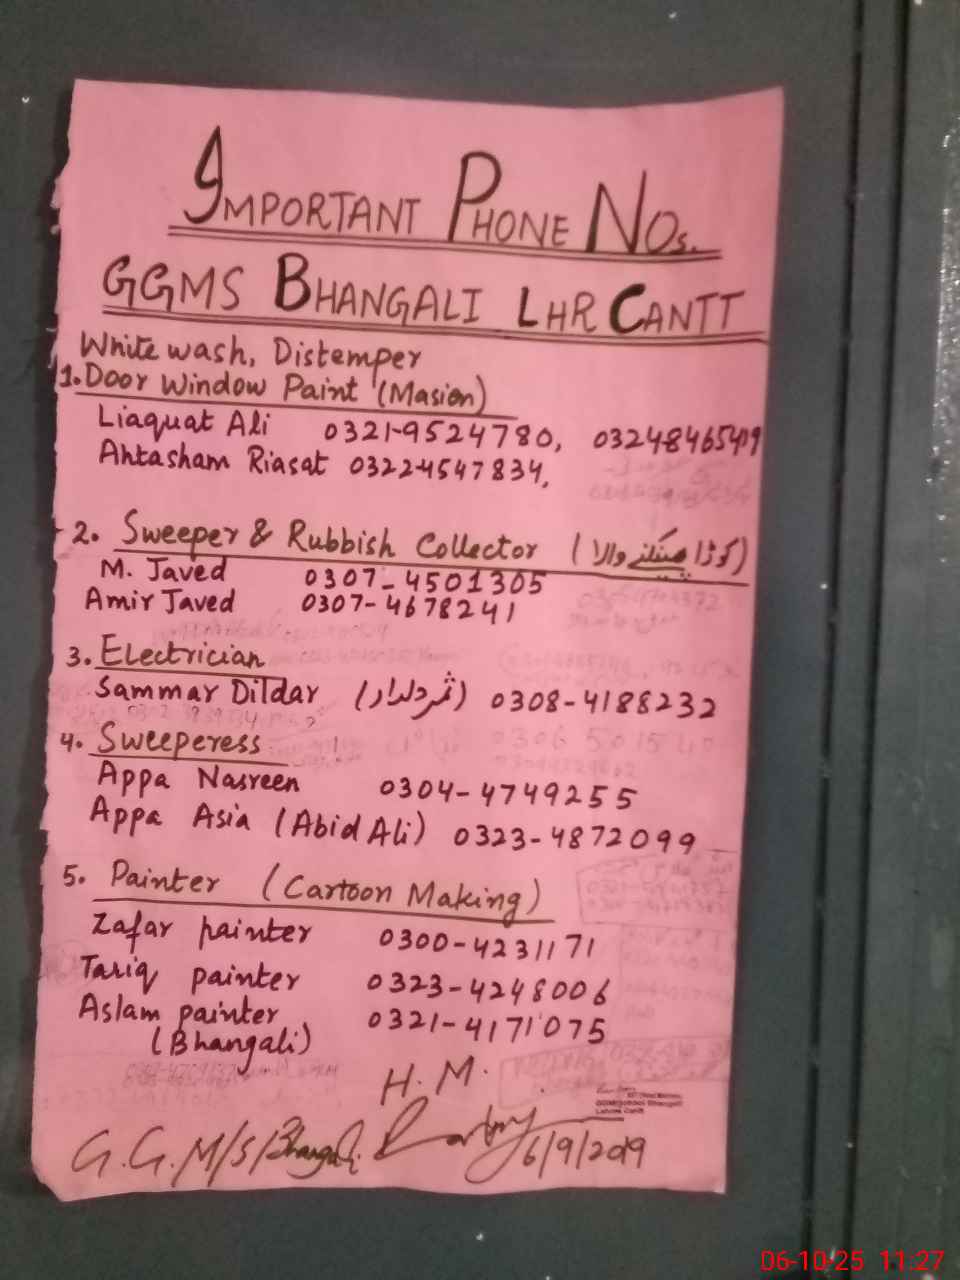 IMPORTANT PHONE NOs.
GGMS BHANGALI LHR CANTT
White wash, Distemper
1. Door Window Paint (Masion)
Liaquat Ali 0321-9524780, 03248465419
Ahtasham Riasat 0322-4547834,
2. Sweeper & Rubbish Collector (کوڑا پھینکنے والا)
M. Javed 0307-4501305
Amir Javed 0307-4678241
3. Electrician
Sammar Dildar (ثمر دلدار) 0308-4188232
4. Sweeperess
Appa Nasreen 0304-4749255
Appa Asia (Abid Ali) 0323-4872099
5. Painter (Cartoon Making)
Zafar painter 0300-4231171
Tariq painter 0323-4248006
Aslam painter 0321-4171075
(Bhangali)
H.M.
G.G.M/S/Bhangali
6/9/2019
06-10-25 11:27